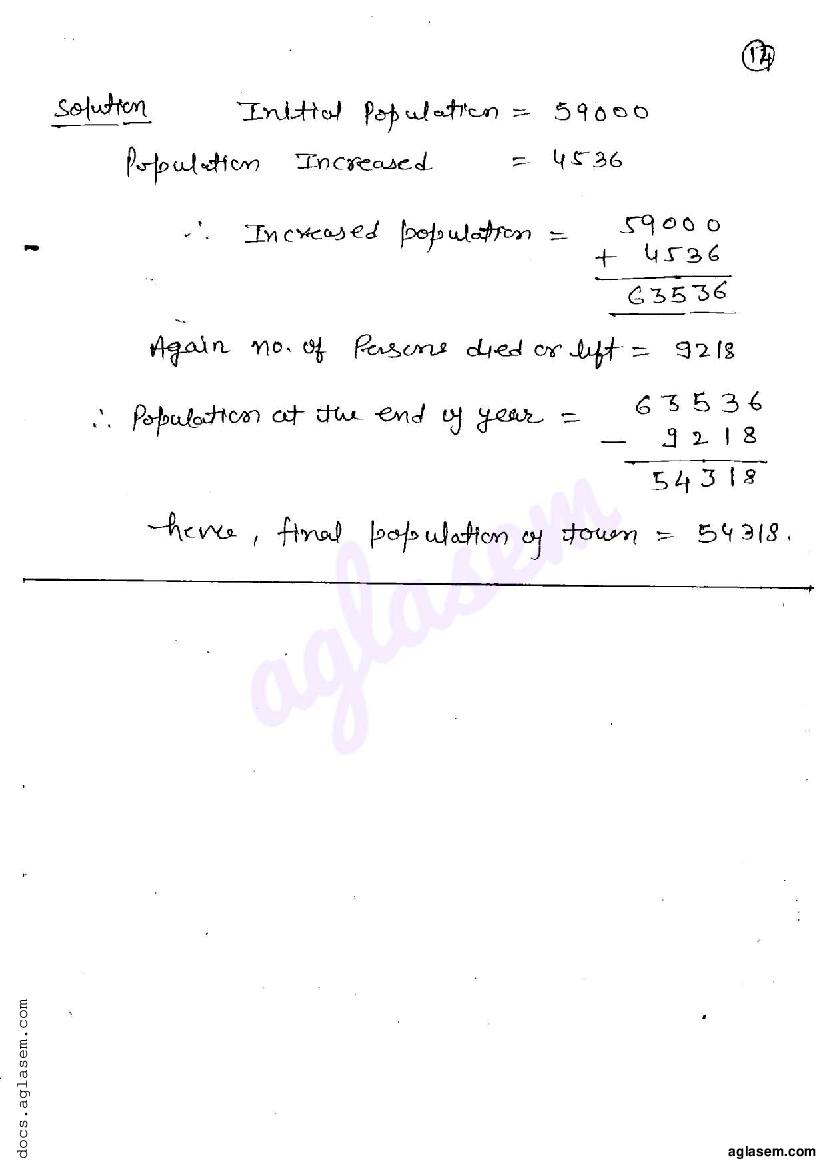 14
Solution Initial Population = 59000
Population Increased = 4536
∴ Increased population = 59000
+ 4536
63536
Again no. of Persons died or left = 9218
∴ Population at the end of year = 63536
- 9218
54318
hence, final population of town = 54318.
aglasem
docs.aglasem.com
aglasem.com